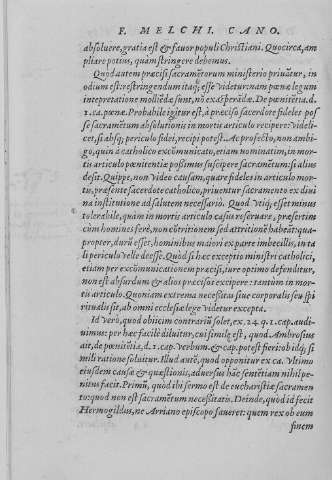 F. MELCHI. CANO.
absoluere, gratia est & fauor populi Christiani. Quocirca, am
pliare potius, quam stringere debemus.
Quod autem præcisi sacramētorum ministerio priuātur, in
odium est: restringendum itaq; esse videtur: nam pœnæ legum
intepretatione molliēdæ sunt, nō exasperādæ. De pœnitētia. d.
1. ca. pœnæ. Probabile igitur est, à præciso sacerdote fideles pos
se sacramētum absolutionis in mortis articulo recipere: videli-
cet, si absq; periculo fidei, recipi potest. At profectò, non ambi-
go, quin à catholico excōmunicato, etiam nominatim, in mor-
tis articulo pœnitentiæ possimus suscipere sacramētum: si alius
desit. Quippe, non video causam, quare fideles in articulo mor-
tis, præsente sacerdote catholico, priuentur sacramento ex diui
na institutione ad salutem necessario. Quod vtiq; esset minus
tolerabile, quàm in mortis articulo casus reseruare, præsertim
cum homines ferè, non cōtritionem sed attritionē habeāt: qua-
propter, durū esset, hominibus maiori ex parte imbecillis, in ta
li periculo velle deesse. Quòd si hæc exceptio ministri catholici,
etiam per excōmunicationem præcisi, iure optimo defenditur,
non est absurdum & alios præcisos excipere: tantùm in mor-
tis articulo. Quoniam extrema necessitas siue corporalis seu spi
ritualis sit, ab omni ecclesiæ lege videtur excepta.
Id verò, quod obijcim contrariū solet, ex. 24. q. 1. cap. audi-
uimus: per hæc facilè diluitur, cui simile est, quod Ambrosius
ait, de pœnitētia, d. 1. cap. verbum. & cap. potest fieri: ob idq; si
mili ratione soluitur. Illud autē, quod opponitur ex ca. vltimo
eiusdem causæ & quæstionis, aduersus hāc sentētiam nihil pe-
nitus facit. Primū, quod ibi sermo est de eucharistiæ sacramen
to: quod non est sacramētum necessitatis. Deinde, quod id fecit
Hermogildus, ne Arriano episcopo faueret: quem rex ob eum
finem